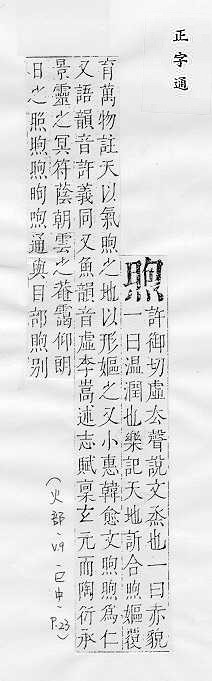 正字通
煦
許御切虛去聲說文烝也一曰赤貌
一曰温潤也樂記天地訢合煦嫗覆
育萬物註天以氣煦之地以形嫗之又小惠韓愈文煦煦爲仁
又語韻音許義同又魚韻音虛李嵩述志賦稟玄元而陶衍承
景靈之冥符蔭朝雲之菴藹仰朗
日之照煦煦昫喣通與目部煦别
(火部、V.9、巳中、P.23)